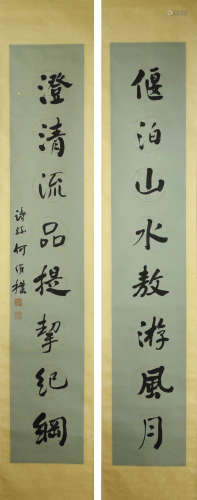 偃泊山水敖游風月
澄清流品提挈紀綱
何維樸